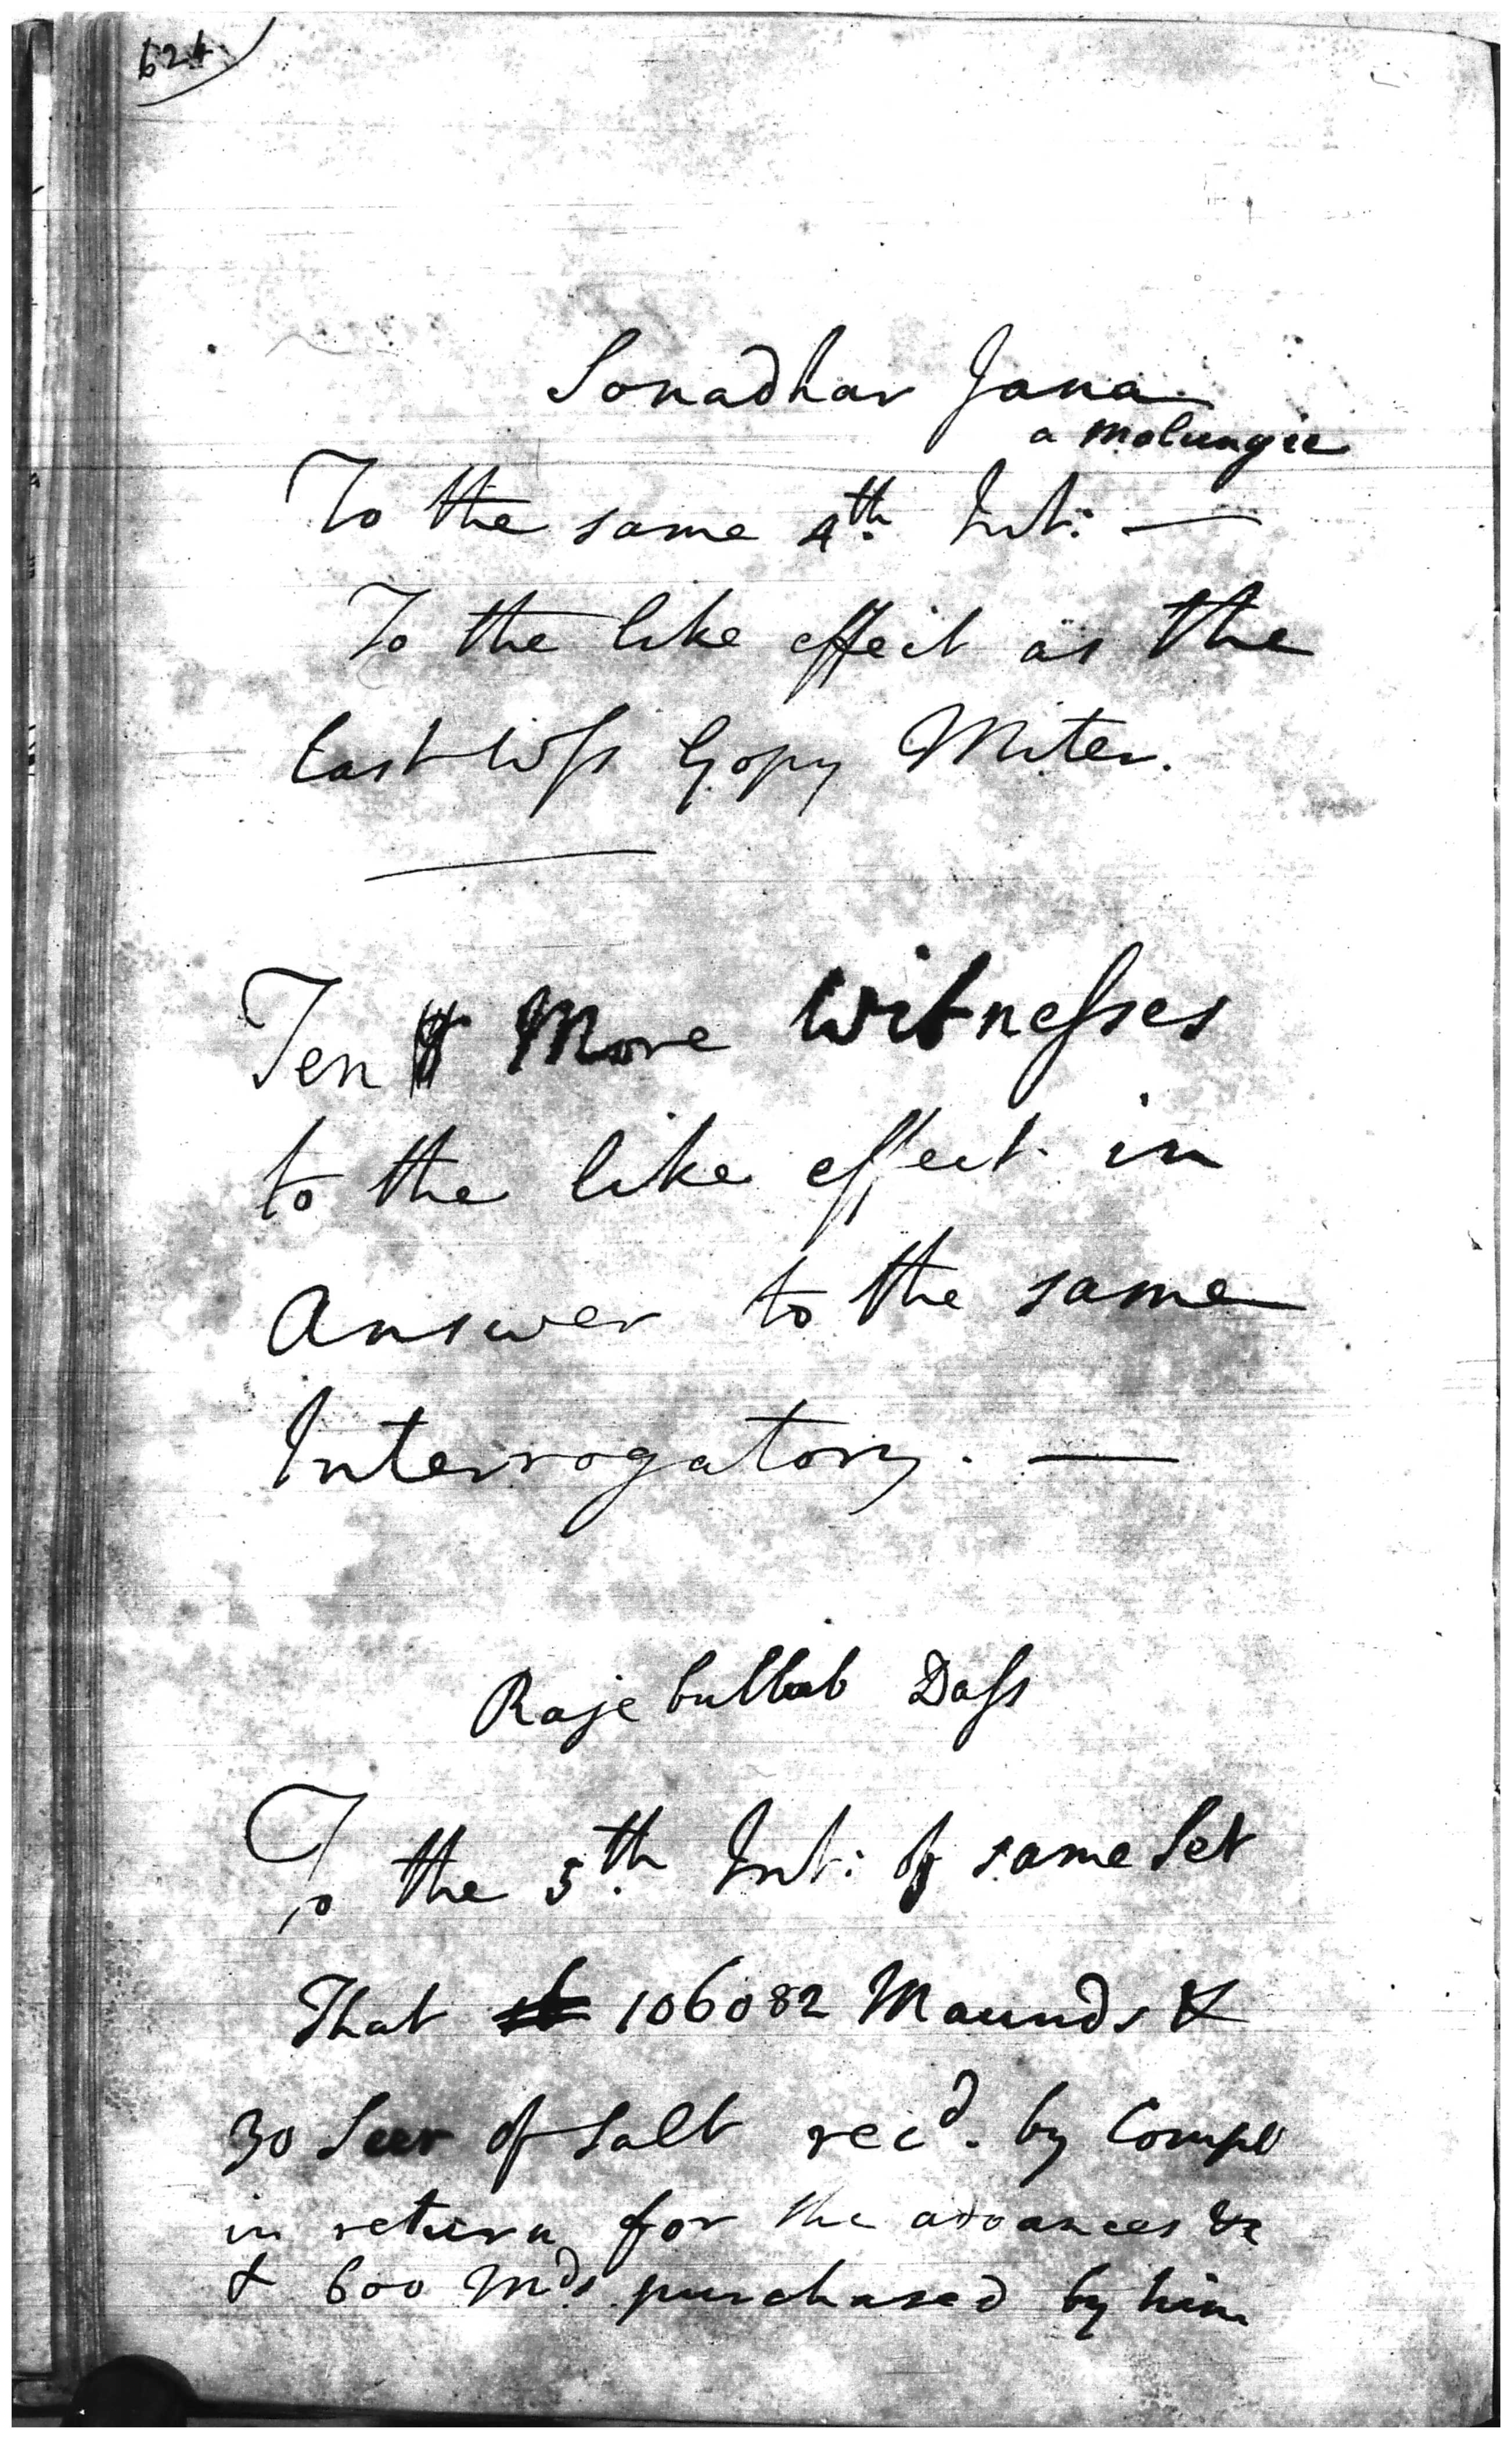 624
Sonadhar Jana
a Molungie
To the same 4th. Int: —
To the like effect as the
last Wss Gopy Miter.
Ten More Witnesses
to the like effect in
Answer to the same
Interrogatory. —
Rajebullub Dass
To the 5th. Int: of same Set
That 106082 Maunds &
30 Seer of Salt rec'd. by Compt
in return for the advances &c
& 600 Mds. purchased by him